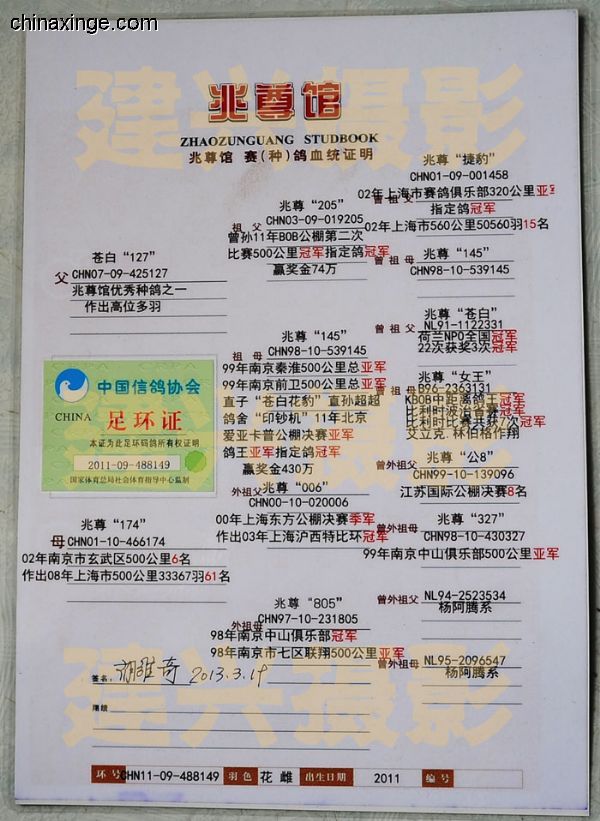 chinaxinge.com
建兴摄影
兆尊馆
ZHAOZUNGUANG STUDBOOK
兆尊馆 赛(种)鸽血统证明
苍白“127”
父 CHN07-09-425127
兆尊馆优秀种鸽之一
作出高位多羽
中国信鸽协会
CHINA 足环证
本证为此足环码鸽所有权证明
2011-09-488149
国家体育总局社会体育指导中心监制
兆尊“174”
母 CHN01-10-466174
02年南京市玄武区500公里6名
作出08年上海市500公里33367羽61名
兆尊“205”
祖父 CHN03-09-019205
曾孙11年BOB公棚第二次
比赛500公里冠军指定鸽冠军
赢奖金74万
兆尊“145”
祖母 CHN98-10-539145
99年南京秦淮500公里总亚军
99年南京前卫500公里总亚军
直子“苍白花豹”直孙超超
鸽舍“印钞机”11年北京
爱亚卡普公棚决赛亚军
鸽王亚军指定鸽冠军
赢奖金430万
外祖父 兆尊“006”
CHN00-10-020006
00年上海东方公棚决赛季军
作出03年上海沪西特比环冠军
兆尊“805”
外祖母 CHN97-10-231805
98年南京中山俱乐部冠军
98年南京市七区联翔500公里亚军
兆尊“捷豹”
曾祖父 CHN01-09-001458
02年上海市赛鸽俱乐部320公里亚军
指定鸽冠军
02年上海市560公里50560羽15名
兆尊“145”
曾祖母 CHN98-10-539145
兆尊“苍白”
曾祖父 NL91-1122331
荷兰NPO全国冠军
22次获奖3次冠军
兆尊“女王”
曾祖母 B96-2363131
KBOB中距离鸽王冠军
比利时波治省赛冠军
比利时比赛共获7次冠军
艾立克.林伯格作翔
兆尊“公8”
曾外祖父 CHN99-10-139096
江苏国际公棚决赛8名
兆尊“327”
曾外祖母 CHN98-10-430327
99年南京中山俱乐部500公里亚军
曾外祖父 NL94-2523534
杨阿腾系
曾外祖母 NL95-2096547
杨阿腾系
签名: 2013.3.19
建兴摄影
环号 CHN11-09-488149 羽色 花 雌 出生日期 2011 编号